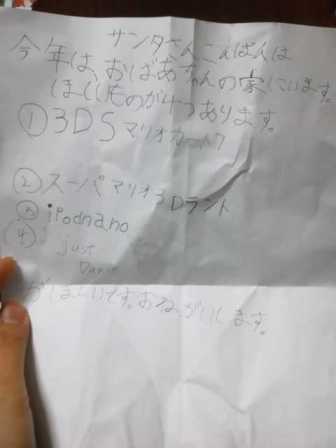 サンタさんこんばんは
今年は、おばあちゃんの家にいます。
ほしいものが4つあります。
①3DSマリオカート7
②スーパマリオ3Dランド
③ipodnano
④just
Dance
がほしいです。おねがいします。